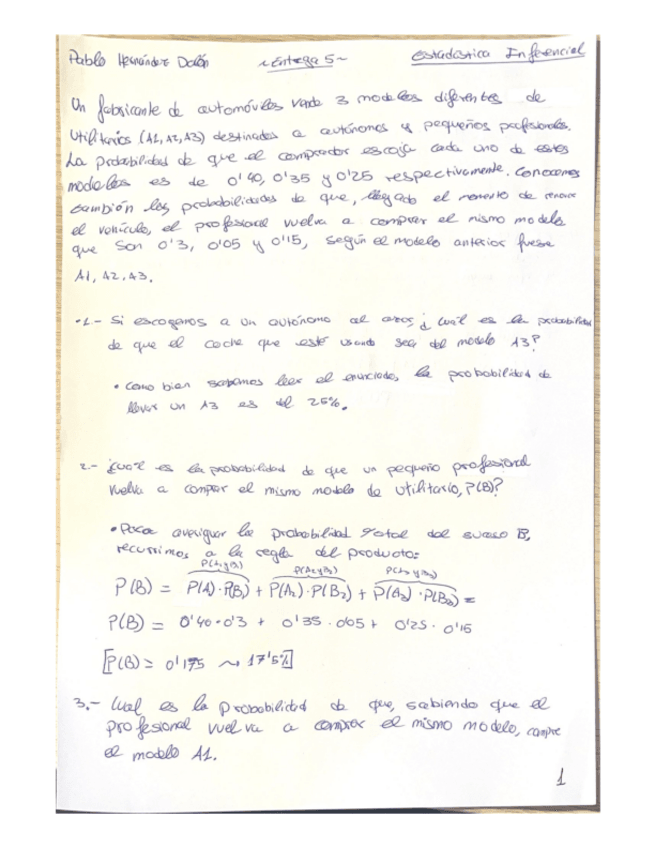 Pablo Hernández Dolón ~Entrega 5~ Estadística Inferencial
Un fabricante de automóviles vende 3 modelos diferentes de
utilitarios (A1, A2, A3) destinados a autónomos y pequeños profesionales.
La probabilidad de que el comprador escoja cada uno de estos
modelos es de 0'40, 0'35 y 0'25 respectivamente. Conocemos
también las probabilidades de que, llegado el momento de renovar
el vehículo, el profesional vuelva a comprar el mismo modelo
que son 0'3, 0'05 y 0'15, según el modelo anterior fuese
A1, A2, A3.
·1.- Si escogemos a un autónomo al azar, ¿cuál es la probabilidad
de que el coche que esté usando sea del modelo A3?
• Como bien sabemos leer el enunciado, la probabilidad de
llevar un A3 es del 25%.
2.- ¿Cuál es la probabilidad de que un pequeño profesional
vuelva a comprar el mismo modelo de utilitario, P(B)?
• Para averiguar la probabilidad total del suceso B,
recurrimos a la regla del producto:
P(B) = P(A)·P(B₁) + P(A₂)·P(B₂) + P(A₃)·P(B₃) =
P(B) = 0'40·0'3 + 0'35·0'05 + 0'25·0'15
[P(B) = 0'175 ⤳ 17'5%]
3.- Cual es la probabilidad de que, sabiendo que el
profesional vuelva a comprar el mismo modelo, compre
el modelo A1.
1